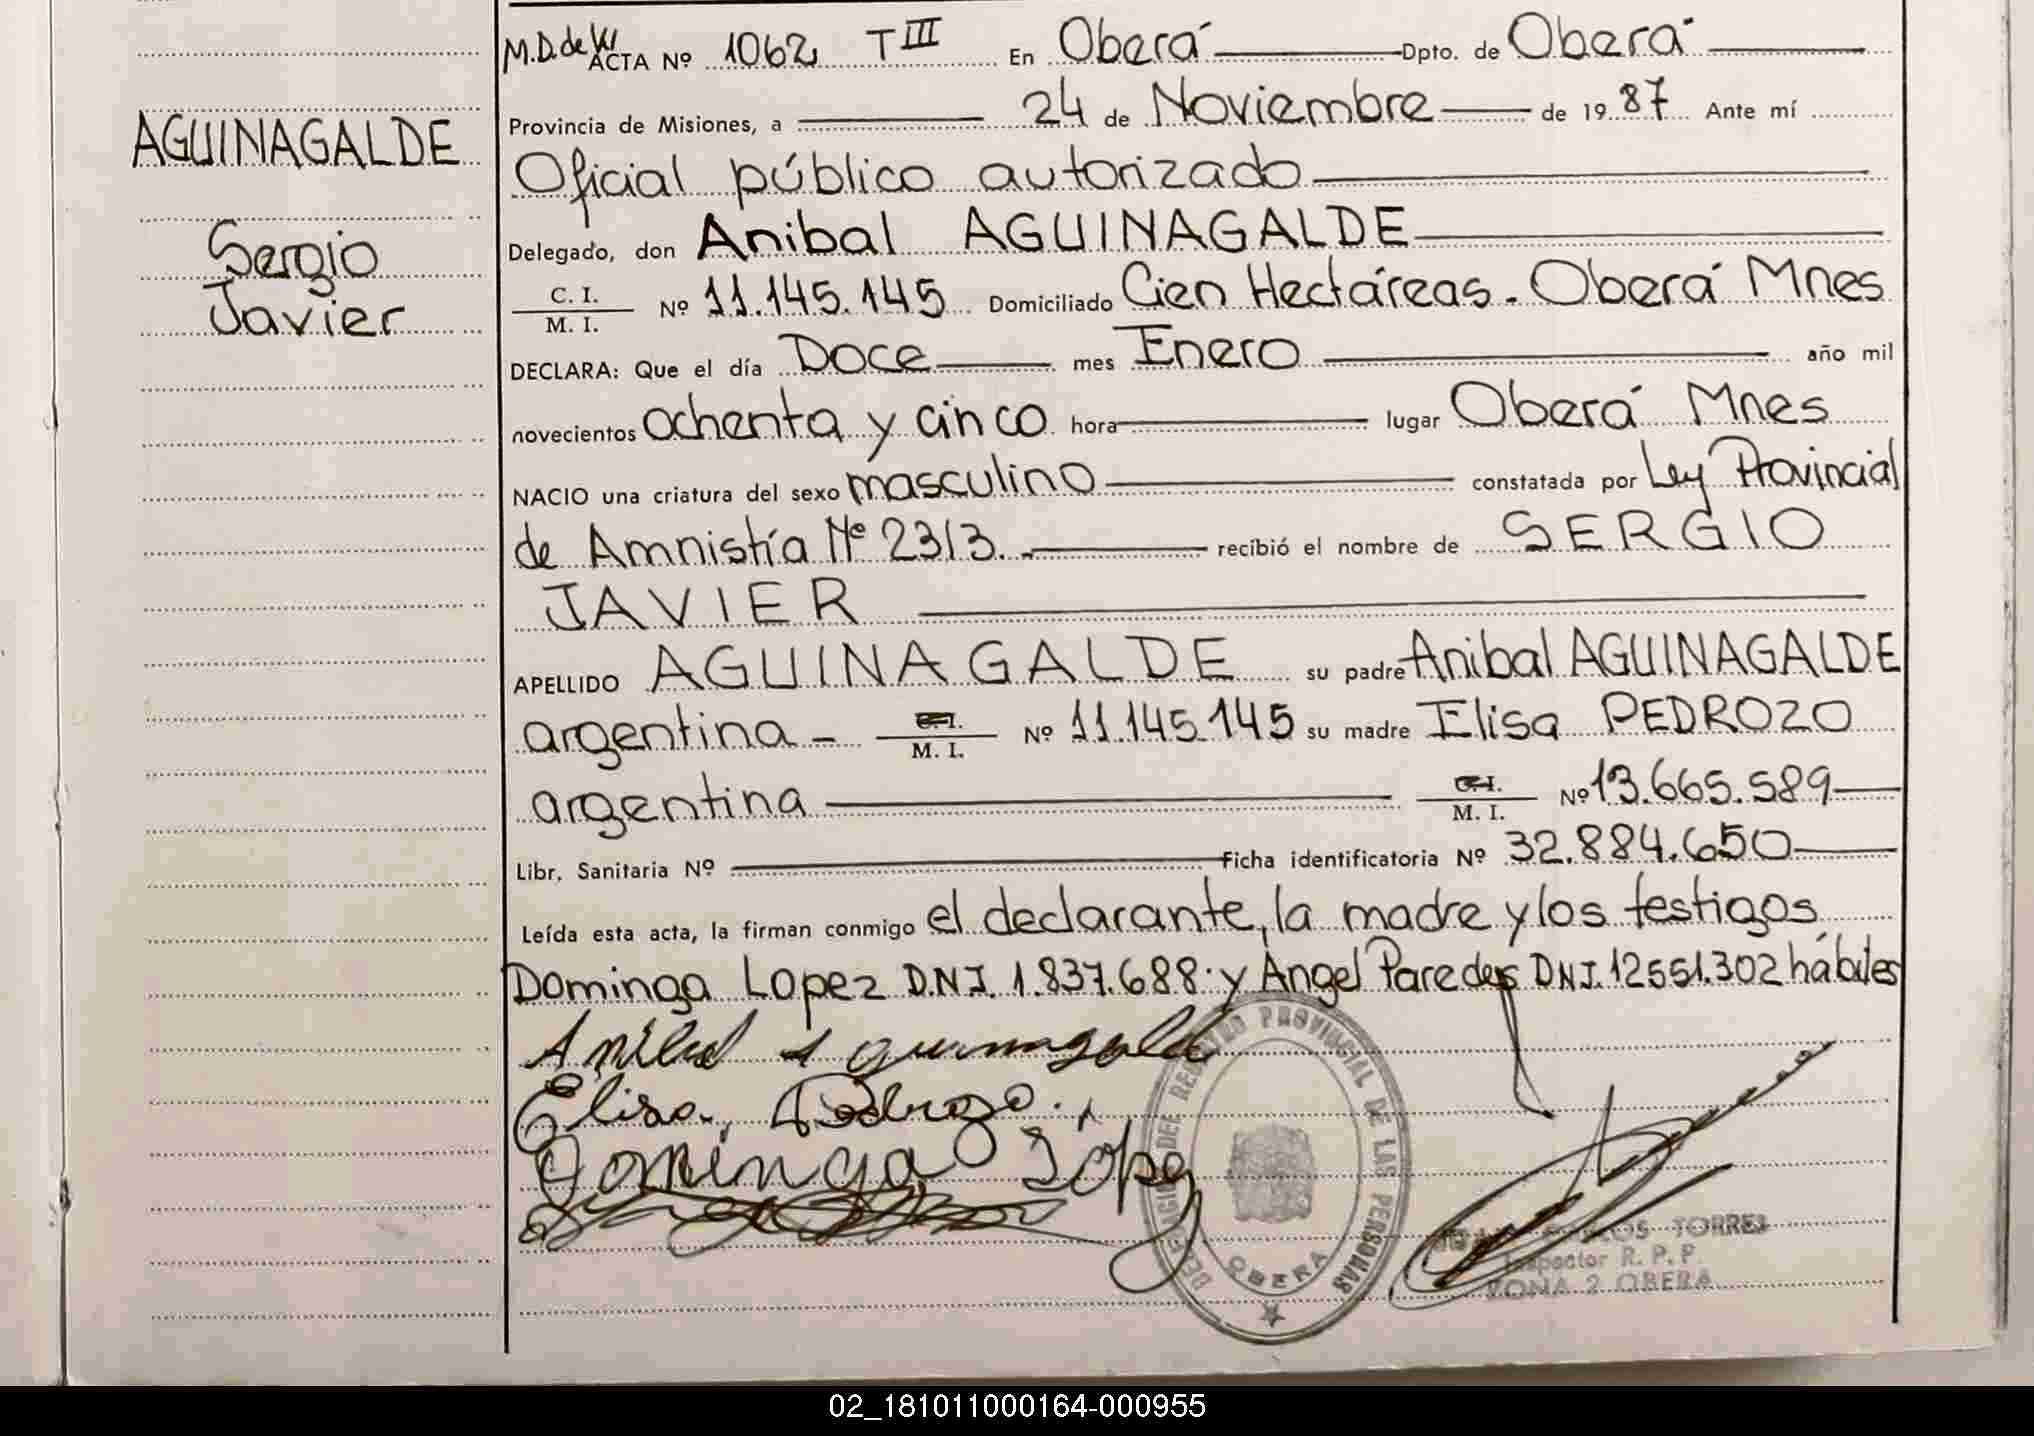 AGUINAGALDE
Sergio
Javier
M.D. de W. ACTA Nº 1062 T III En Oberá Dpto. de Oberá
Provincia de Misiones, a 24 de Noviembre de 1987 Ante mí
Oficial público autorizado
Delegado, don Anibal AGUINAGALDE
C. I.
M. I. Nº 11.145.145 Domiciliado Cien Hectáreas. Oberá Mnes
DECLARA: Que el día Doce mes Enero año mil
novecientos ochenta y cinco hora lugar Oberá Mnes
NACIO una criatura del sexo masculino constatada por Ley Provincial
de Amnistía Nº 2313. recibió el nombre de SERGIO
JAVIER
APELLIDO AGUINAGALDE su padre Anibal AGUINAGALDE
argentina - C.I. M. I. Nº 11.145.145 su madre Elisa PEDROZO
argentina C.I. M. I. Nº 13.665.589
Libr. Sanitaria Nº Ficha identificatoria Nº 32.884.650
Leída esta acta, la firman conmigo el declarante, la madre y los testigos
Dominga Lopez D.N.I. 1.837.688 y Angel Paredes D.N.I. 12551.302 hábiles
Anibal Aguinagalde
Elisa Pedrozo
Dominga López
DELEGACION DEL REGISTRO PROVINCIAL DE LAS PERSONAS
OBERA
TORRES
Inspector R. P. P.
ZONA 2 OBERA
02_181011000164-000955